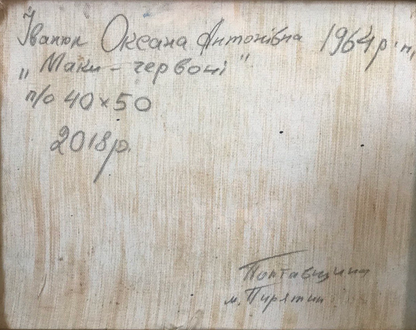 Іванюк Оксана Антонівна 1964 р.н.
"Маки - червоні"
п/о 40×50
2018р.
Полтавщина
м. Пирятин